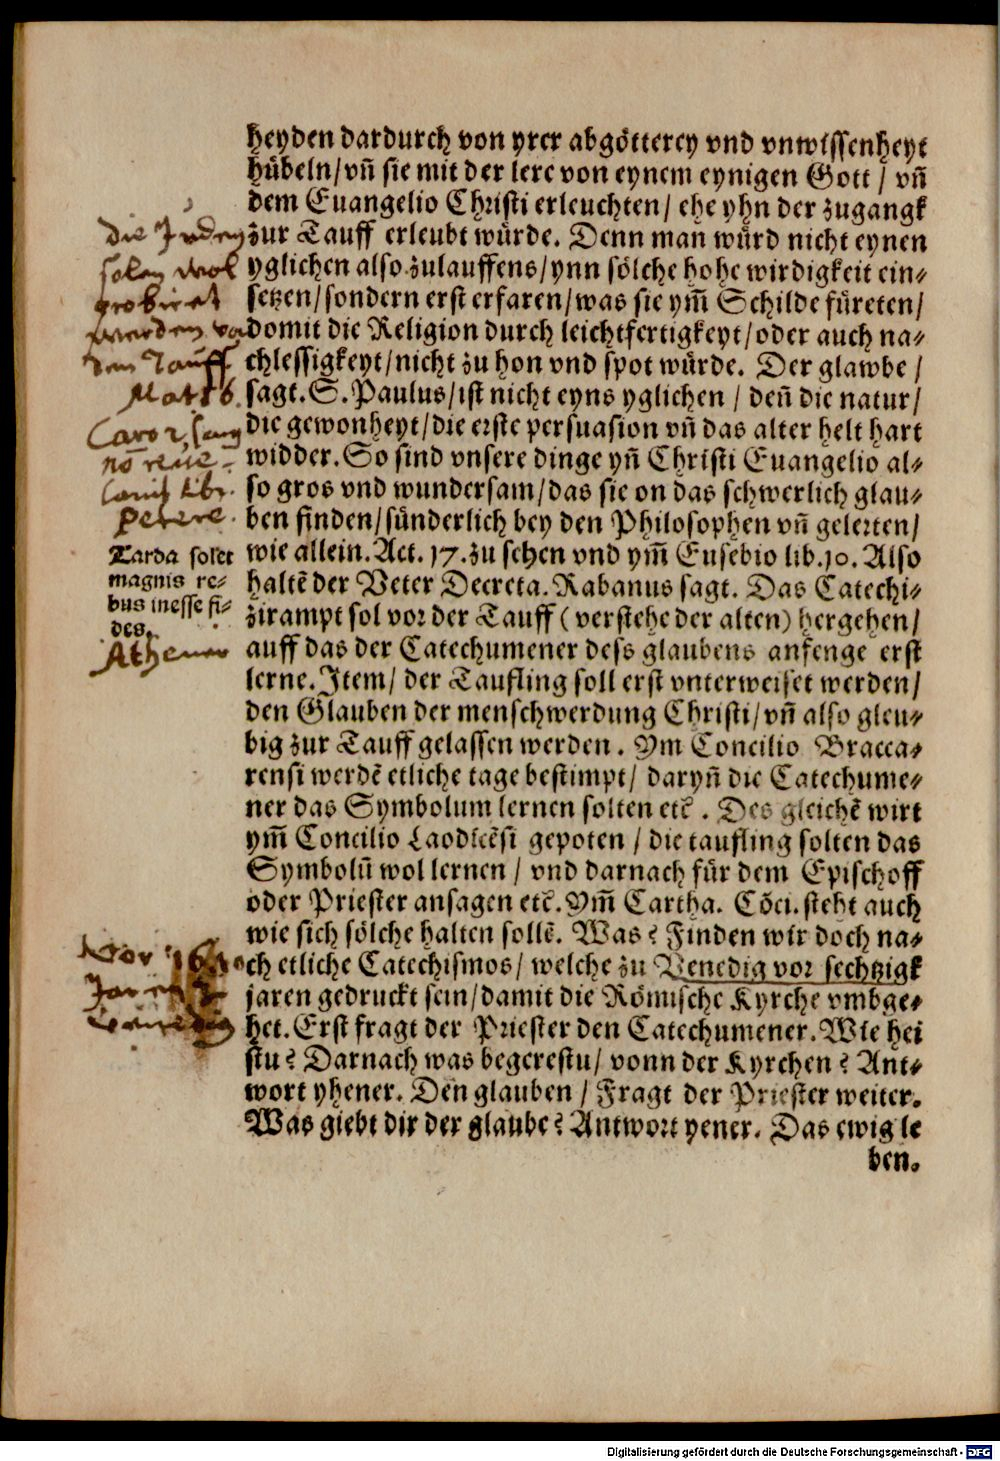 heyden dardurch von yrer abgötterey vnd vnwissenheyt
hübeln/vn̄ sie mit der lere von eynem eynigen Gott / vn̄
dem Euangelio Christi erleuchten/ ehe yhn der zugangk
zur Tauff erleubt würde. Denn man würd nicht eynen
yglichen also zulauffens/ynn sölche hohe wirdigkeit ein⸗
setzen/sondern erst erfaren/was sie ym̄ Schilde füreten/
domit die Religion durch leichtfertigkeyt/oder auch na⸗
chlessigkeyt/nicht zu hon vnd spot würde. Der glawbe /
sagt. S. Paulus/ist nicht eyns yglichen / den̄ die natur/
die gewonheyt/die erste persuasion vn̄ das alter helt hart
widder. So sind vnsere dinge yn̄ Christi Euangelio al⸗
so gros vnd wundersam/das sie on das schwerlich glau⸗
ben finden/sünderlich bey den Philosophen vn̄ gelerten/
wie allein. Act. 17. zu sehen vnd ym̄ Eusebio lib.10. Also
haltē der Veter Decreta. Rabanus sagt. Das Catechi⸗
zirampt sol vor der Tauff (verstehe der alten) hergehen/
auff das der Catechumener dess glaubens anfenge erst
lerne. Item/ der Taufling soll erst vnterweiset werden/
den Glauben der menschwerdung Christi/vn̄ also gleu⸗
big zur Tauff gelassen werden. Ym Concilio Bracca⸗
rensi werdē etliche tage bestimpt/ daryn̄ die Catechume⸗
ner das Symbolum lernen solten etc̄. Des gleichē wirt
ym̄ Concilio Laodicēsi gepoten / die taufling solten das
Symbolū wol lernen / vnd darnach für dem Epischoff
oder Priester ansagen etc̄. Ym̄ Cartha. Cōci. steht auch
wie sich sölche halten sollē. Was? Finden wir doch na⸗
ch etliche Catechismos/ welche zu Venedig vor sechtzigk
jaren gedruckt sein/damit die Römische Kyrche vmbge⸗
het. Erst fragt der Priester den Catechumener. Wie hei
stu? Darnach was begerestu/ vonn der Kyrchen? Ant⸗
wort yhener. Den glauben / Fragt der Priester weiter.
Was giebt dir der glaube? Antwort yener. Das ewig le
ben.
die Juden
solen wol
probiret
werden vor
den Tauff
non
petere.
Tarda solet
magnis re⸗
bus inesse fi⸗
des.
Vor
Jaren
Digitalisierung gefördert durch die Deutsche Forschungsgemeinschaft - DFG